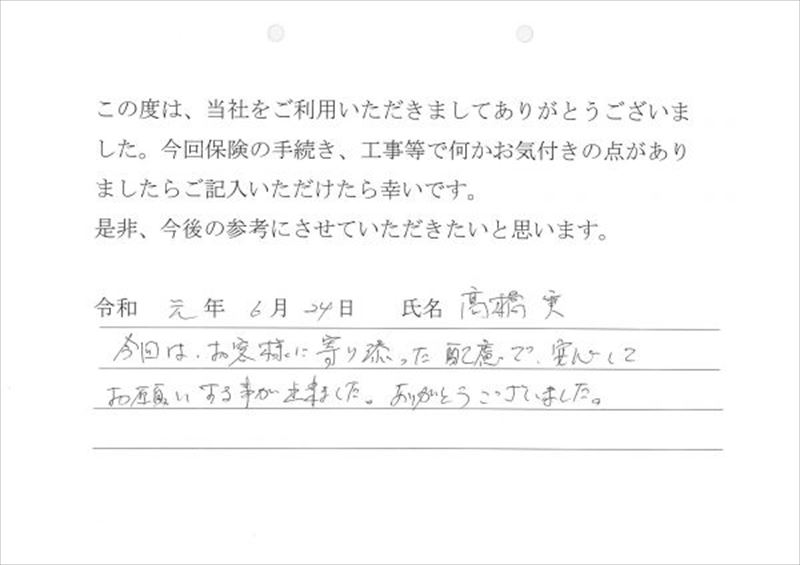 この度は、当社をご利用いただきましてありがとうございま
した。今回保険の手続き、工事等で何かお気付きの点があり
ましたらご記入いただけたら幸いです。
是非、今後の参考にさせていただきたいと思います。
令和 元 年 6 月 24 日 氏名 高橋 実
今回は、お客様に寄り添った配慮で、安心して
お願いする事が出来ました。ありがとうございました。